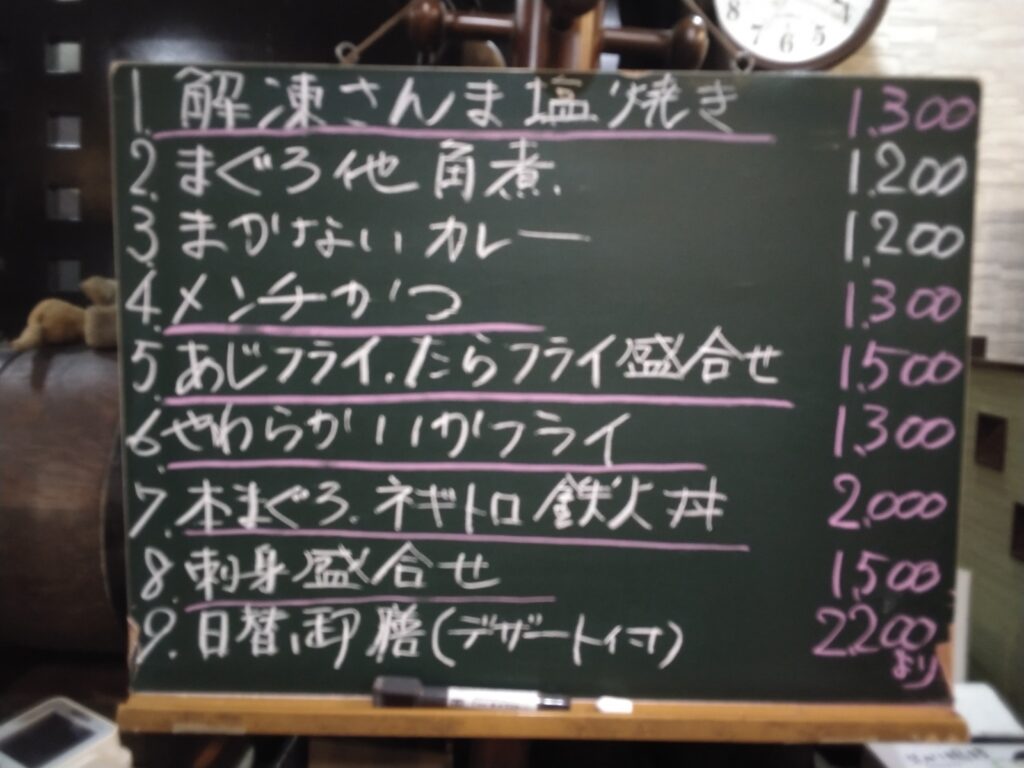 1. 解凍さんま塩焼き 1.300
2. まぐろ他角煮. 1.200
3 まかない カレー 1.200
4. メンチかつ 1.300
5. あじフライ.たらフライ盛合せ 1.500
6. やわらかいいかフライ 1.300
7. 本まぐろ.ネギトロ鉄火丼 2.000
8. 刺身盛合せ 1.500
9. 日替御膳(デザート付) 2.200
より
8 7 6 5 4